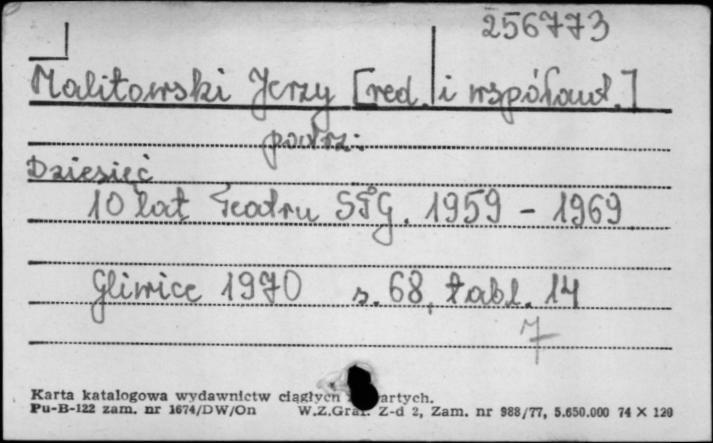 256773
Malitowski Jerzy [red. i współaut.]
patrz:
Dziesięć
10 lat Teatru STG. 1959 - 1969
Gliwice 1970 s. 68, tabl. 14
7
Karta katalogowa wydawnictw ciągłych i zwartych.
Pu-B-122 zam. nr 1674/DW/On W.Z.Graf. Z-d 2, Zam. nr 988/77, 5.650.000 74 X 120